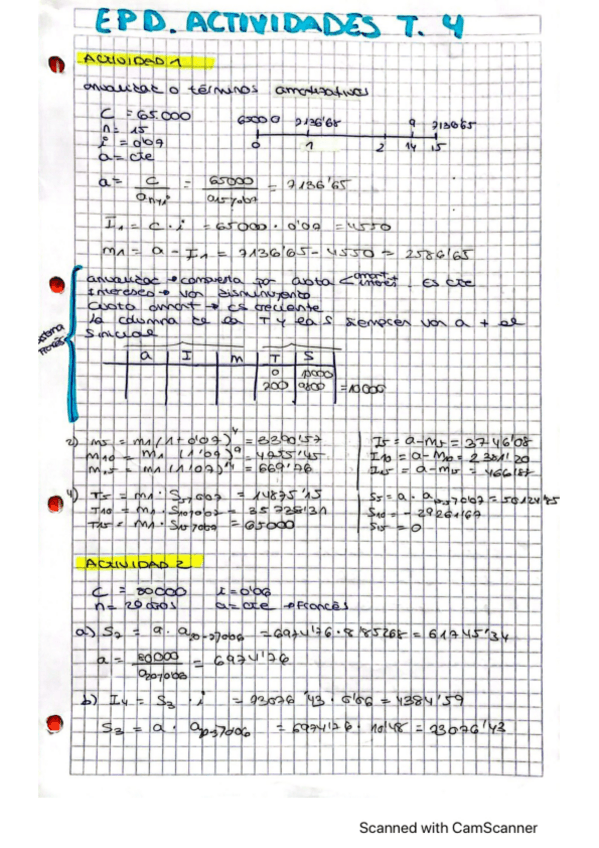 EPD. ACTIVIDADES T. 4
ACTIVIDAD 1
anualidad o términos amortizativos
C = 65.000
n = 15
i = 0'07
a = cte
65000 7136'65 9 7136'65
0 1 2 14 15
a = C / an┐i = 65000 / a15┐0'07 = 7136'65
I1 = C · i = 65000 · 0'07 = 4550
m1 = a - I1 = 7136'65 - 4550 = 2586'65
anualidad → compuesta por cuota < amort. + interés . Es cte
Intereses → van disminuyendo
Cuota amort → es creciente
la columna de la T y la S siempre van a + el
S inicial
a I m T S
0 10000
200 9800 = 10000
2) m5 = m1 (1+0'07)^4 = 3390'57
m10 = m1 (1'07)^9 = 4755'45
m15 = m1 (1'07)^14 = 6669'76
I5 = a - m5 = 3746'08
I10 = a - m10 = 2381'20
I15 = a - m15 = 466'87
4) T5 = m1 · S5┐0'07 = 14875'15
T10 = m1 · S10┐0'07 = 35738'31
T15 = m1 · S15┐0'07 = 65000
S5 = a · a10┐0'07 = 50124'85
S10 = - 29261'67
S15 = 0
ACTIVIDAD 2
C = 80000 i = 0'06
n = 20 años a = cte → Francés
a) S7 = a · a20-7┐0'06 = 6974'76 · 8'85268 = 61745'34
a = 80000 / a20┐0'06 = 6974'76
b) I4 = S3 · i = 73076'43 · 0'06 = 4384'59
S3 = a · a┐0'06 = 6974'76 · 10'48 = 73076'43
Scanned with CamScanner